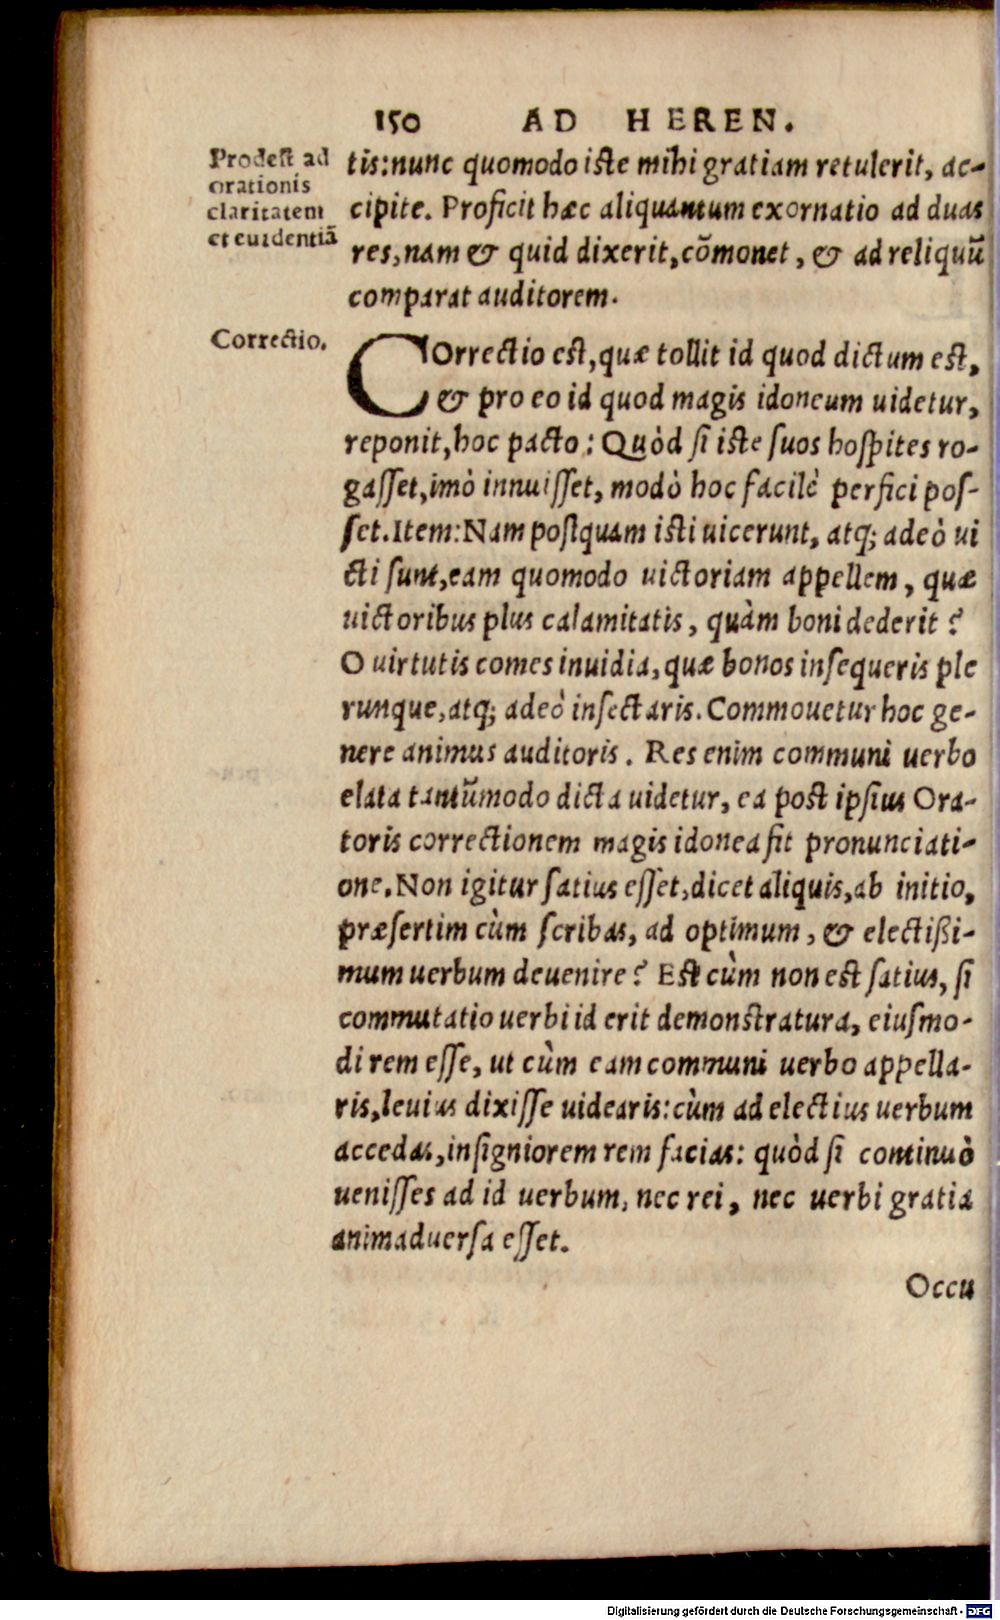 150 AD HEREN.
Prodest ad
orationis
claritatem
et euidentiã
tis: nunc quomodo iste mihi gratiam retulerit, ac-
cipite. Proficit hæc aliquantum exornatio ad duas
res, nam & quid dixerit, cõmonet, & ad reliquũ
comparat auditorem.
Correctio.
COrrectio est, quæ tollit id quod dictum est,
& pro eo id quod magis idoneum uidetur,
reponit, hoc pacto: Quòd ſi iste ſuos hoſpites ro-
gaſſet, imò innuiſſet, modò hoc facilè perfici poſ-
ſet. Item: Nam poſtquam isti uicerunt, atq; adeò ui
cti ſunt, eam quomodo uictoriam appellem, quæ
uictoribus plus calamitatis, quàm boni dederit?
O uirtutis comes inuidia, quæ bonos inſequeris ple
runque, atq; adeò inſectaris. Commouetur hoc ge-
nere animus auditoris. Res enim communi uerbo
elata tantũmodo dicta uidetur, ea post ipſius Ora-
toris correctionem magis idonea fit pronunciati-
one. Non igitur ſatius eſſet, dicet aliquis, ab initio,
præſertim cùm ſcribas, ad optimum, & electißi-
mum uerbum deuenire? Est cùm non est ſatius, ſi
commutatio uerbi id erit demonstratura, eiuſmo-
di rem eſſe, ut cùm eam communi uerbo appella-
ris, leuius dixiſſe uidearis: cùm ad electius uerbum
accedas, inſigniorem rem facias: quòd ſi continuò
ueniſſes ad id uerbum, nec rei, nec uerbi gratia
animaduerſa eſſet.
Occu
Digitalisierung gefördert durch die Deutsche Forschungsgemeinschaft - DFG